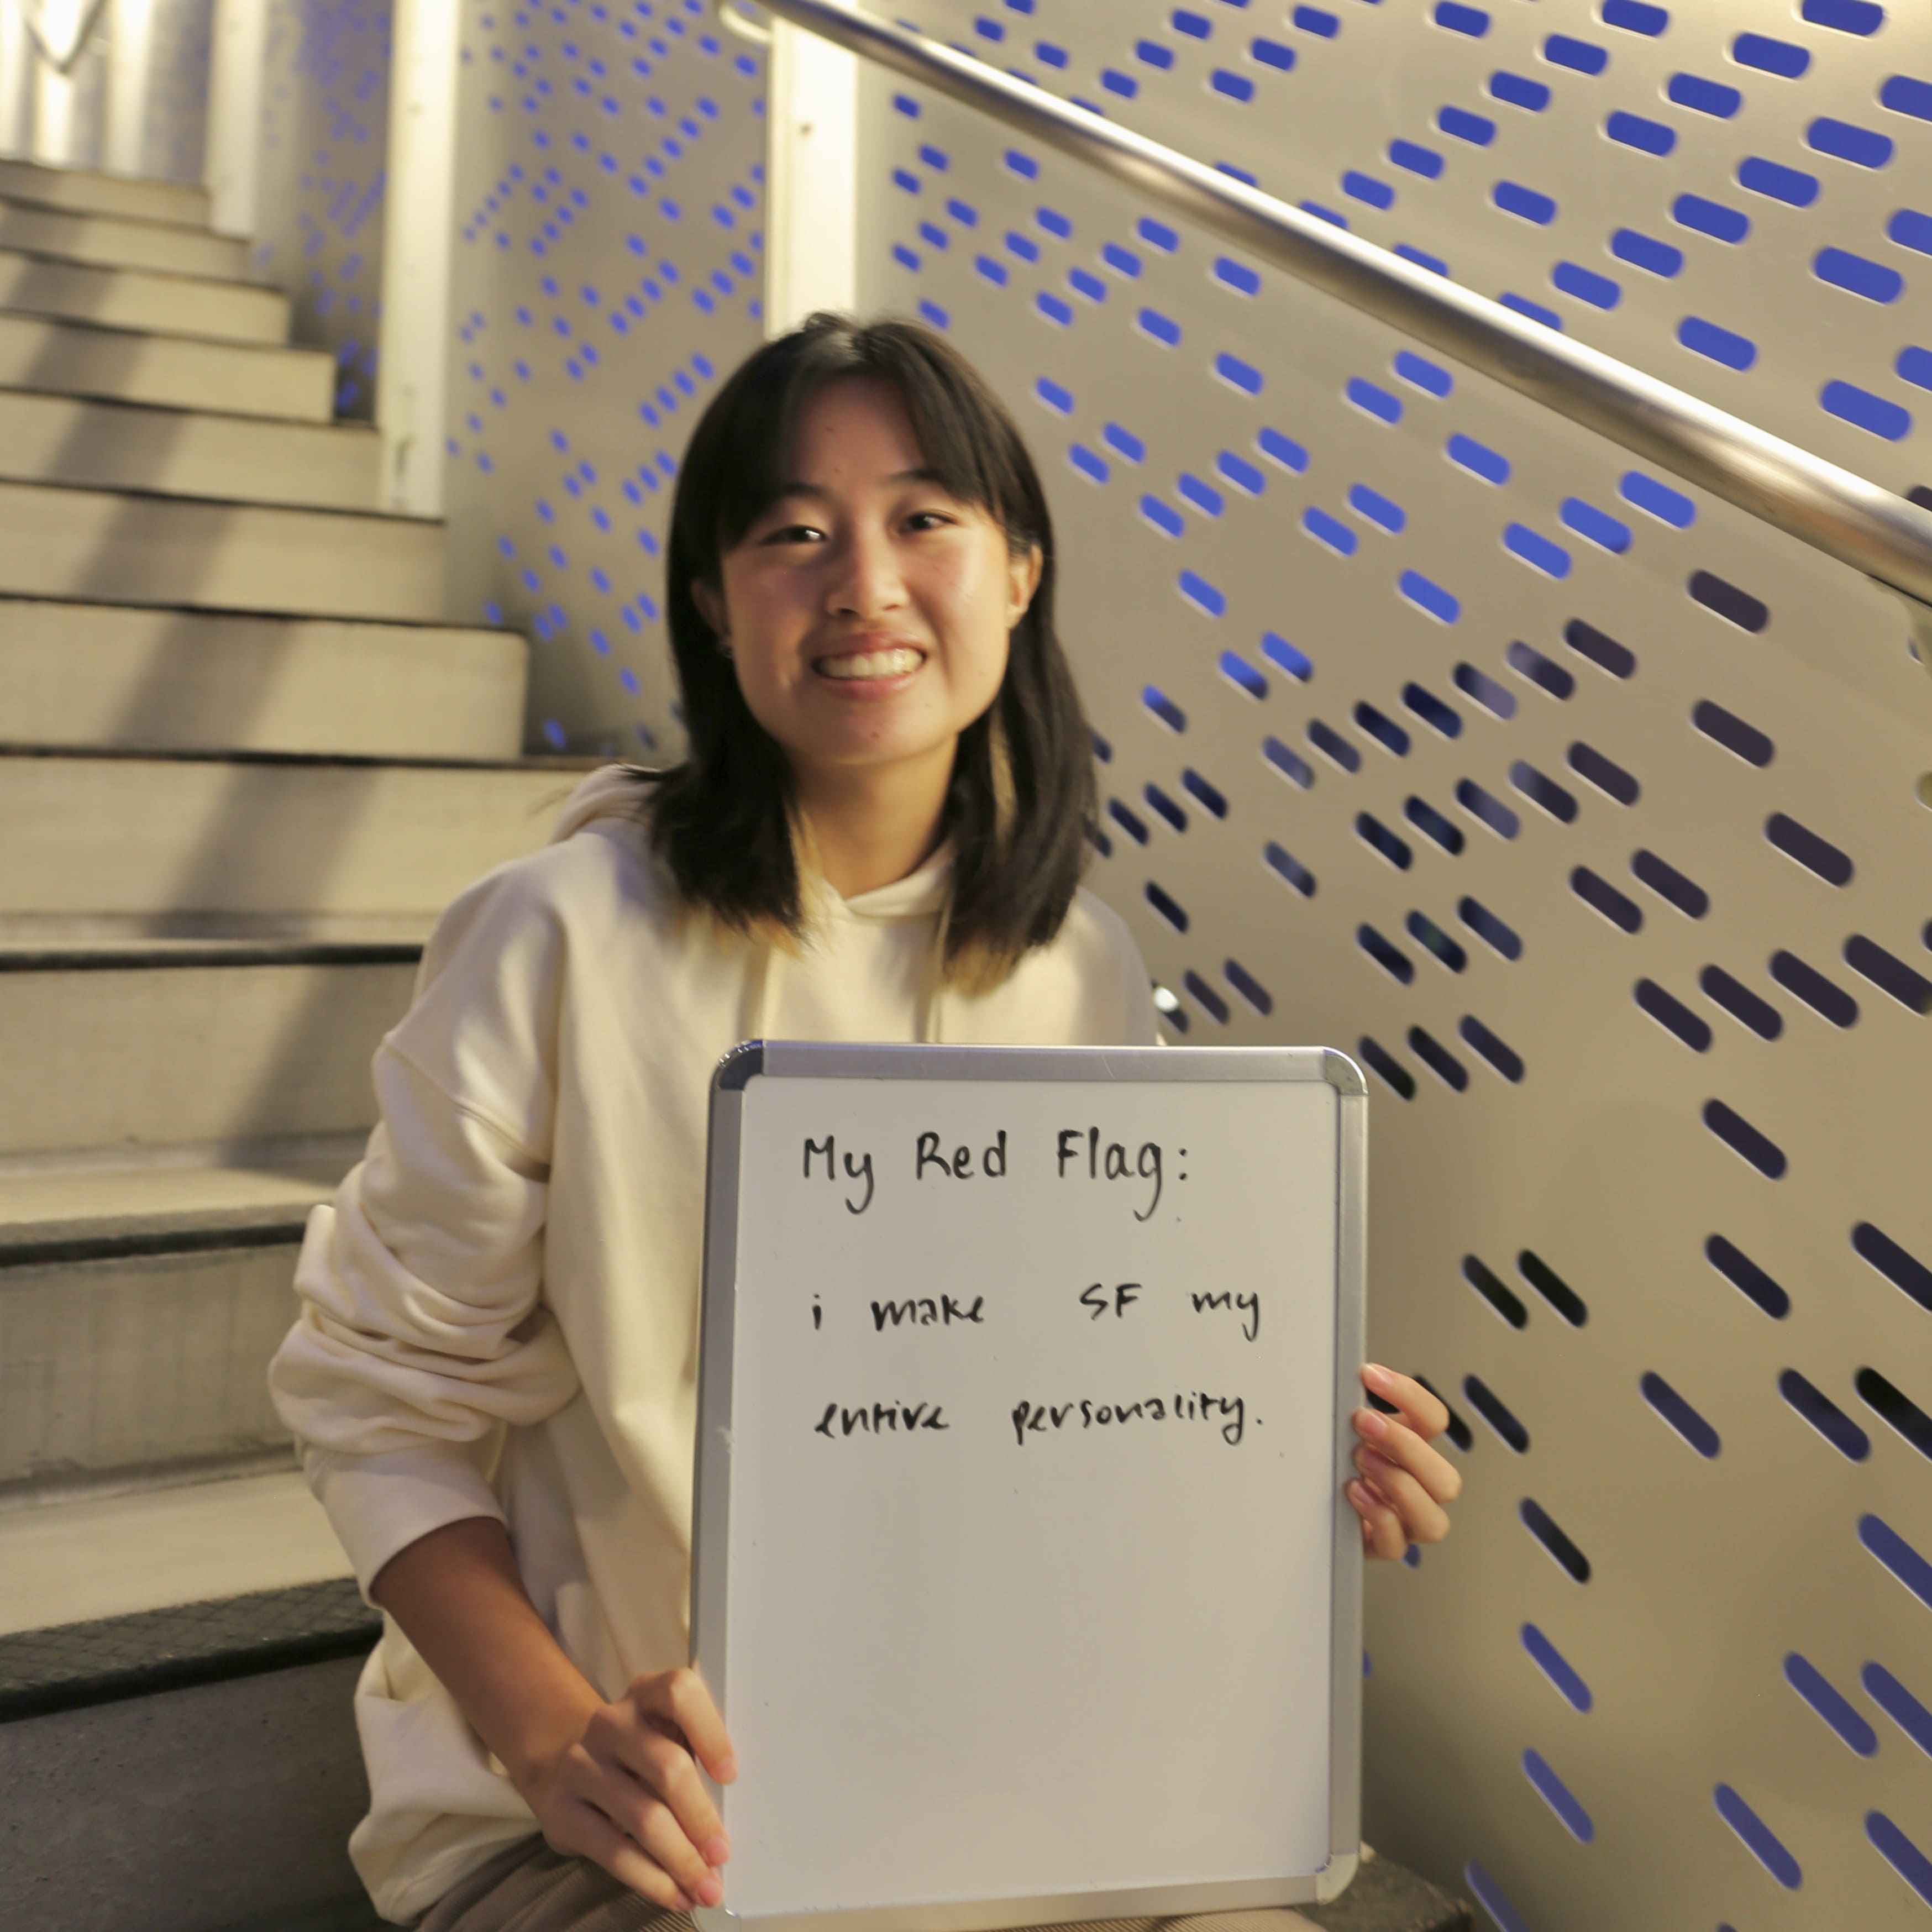 My Red Flag:
i make SF my
entire personality.